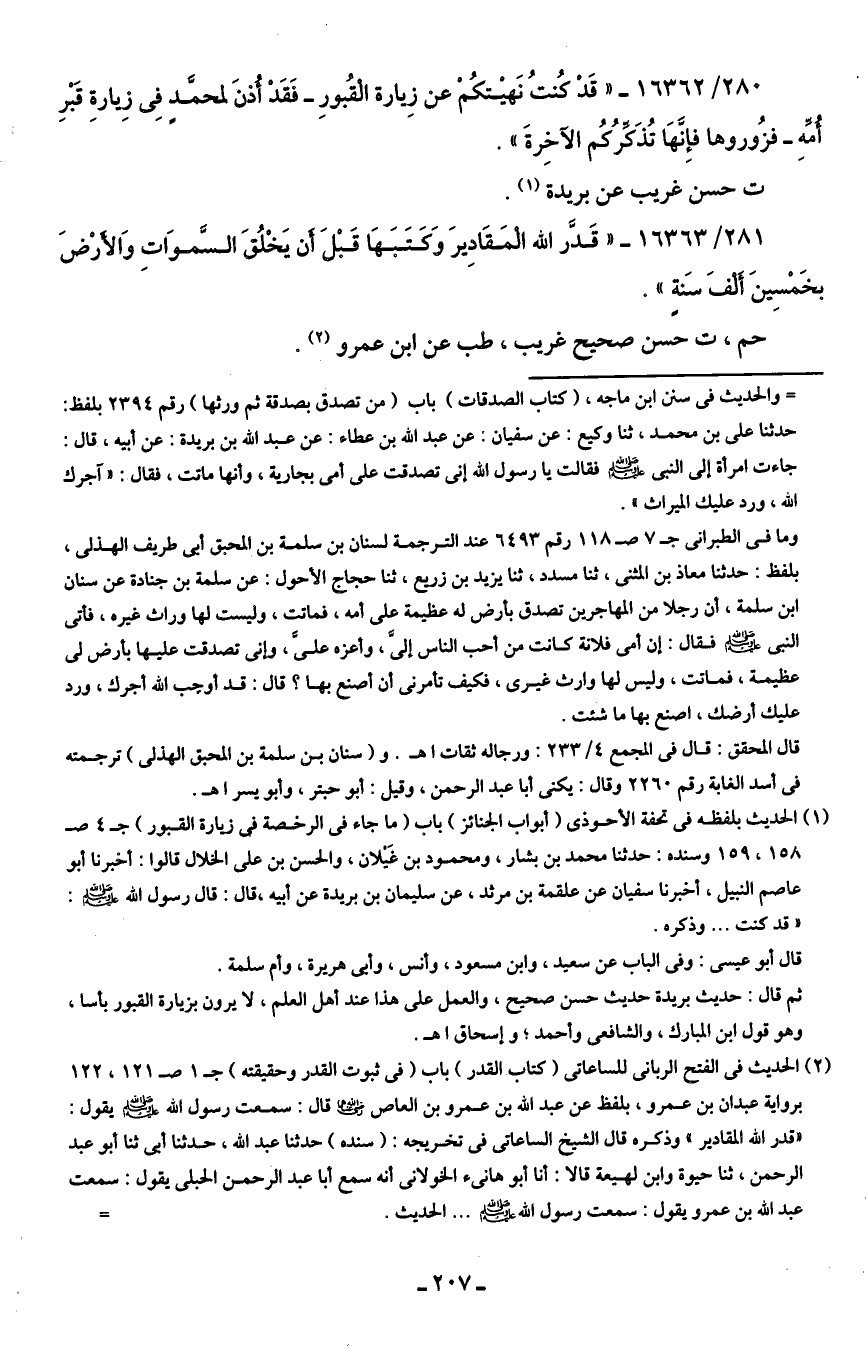 ٢٨٠/ ١٦٣٦٢ ـ « قَدْ كُنتُ نَهَيْتكُمْ عن زِيارة الْقُبورِ ـ فَقَدْ أُذنَ لمحمَّدٍ فِى زِيارةِ قَبْرِ
أُمِّهِ ـ فزُوروها فإِنَّهَا تُذَكِّرُكُم الآخِرةَ » .
ت حسن غريب عن بريدة (١) .
٢٨١/ ١٦٣٦٣ ـ « قَدَّر الله الْمَقَاديرَ وَكَتَبَهَا قَبْلَ أن يَخْلُقَ السَّموَاتِ وَالأَرْضَ
بخَمْسِينَ أَلْفَ سَنَةٍ » .
حم ، ت حسن صحيح غريب ، طب عن ابن عمرو (٢) .
= والحديث فى سنن ابن ماجه ، ( كتاب الصدقات ) باب ( من تصدق بصدقة ثم ورثها ) رقم ٢٣٩٤ بلفظ :
حدثنا على بن محمد ، ثنا وكيع : عن سفيان : عن عبد الله بن عطاء : عن عبد الله بن بريدة : عن أبيه ، قال :
جاءت امرأة إلى النبى ﷺ فقالت يا رسول الله إنى تصدقت على أمى بجارية ، وأنها ماتت ، فقال : « آجرك
الله ، ورد عليك الميراث » .
وما فى الطبرانى جـ ٧ صـ ١١٨ رقم ٦٤٩٣ عند الترجمة لسنان بن سلمة بن المحبق أبى طريف الهذلى ،
بلفظ : حدثنا معاذ بن المثنى ، ثنا مسدد ، ثنا يزيد بن زريع ، ثنا حجاج الأحول : عن سلمة بن جنادة عن سنان
ابن سلمة ، أن رجلا من المهاجرين تصدق بأرض له عظيمة على أمه ، فماتت ، وليست لها وراث غيره ، فأتى
النبى ﷺ فقال : إن أمى فلانة كانت من أحب الناس إلىَّ ، وأعزه علىَّ ، وإنى تصدقت عليها بأرض لى
عظيمة ، فماتت ، وليس لها وارث غيرى ، فكيف تأمرنى أن أصنع بها ؟ قال : قد أوجب الله أجرك ، ورد
عليك أرضك ، اصنع بها ما شئت .
قال المحقق : قال فى المجمع ٤/ ٢٣٣ : ورجاله ثقات اهـ . و ( سنان بن سلمة بن المحبق الهذلى ) ترجمته
فى أسد الغابة رقم ٢٢٦٠ وقال : يكنى أبا عبد الرحمن ، وقيل : أبو حبتر ، وأبو يسر اهـ .
(١) الحديث بلفظه فى تحفة الأحوذى ( أبواب الجنائز ) باب ( ما جاء فى الرخصة فى زيارة القبور ) جـ ٤ صـ
١٥٨ ، ١٥٩ وسنده : حدثنا محمد بن بشار ، ومحمود بن غَيْلان ، والحسن بن على الخلال قالوا : أخبرنا أبو
عاصم النبيل ، أخبرنا سفيان عن علقمة بن مرثد ، عن سليمان بن بريدة عن أبيه ،قال : قال رسول الله ﷺ :
« قد كنت ... وذكره .
قال أبو عيسى : وفى الباب عن سعيد ، وابن مسعود ، وأنس ، وأبى هريرة ، وأم سلمة .
ثم قال : حديث بريدة حديث حسن صحيح ، والعمل على هذا عند أهل العلم ، لا يرون بزيارة القبور بأسا ،
وهو قول ابن المبارك ، والشافعى وأحمد ؛ و إسحاق اهـ .
(٢) الحديث فى الفتح الربانى للساعاتى ( كتاب القدر ) باب ( فى ثبوت القدر وحقيقته ) جـ ١ صـ ١٢١ ، ١٢٢
برواية عبدان بن عمرو ، بلفظ عن عبد الله بن عمرو بن العاص رضي الله عنهما قال : سمعت رسول الله ﷺ يقول :
«قدر الله المقادير » وذكره قال الشيخ الساعاتى فى تخريجه : ( سنده ) حدثنا عبد الله ، حدثنا أبى ثنا أبو عبد
الرحمن ، ثنا حيوة وابن لهيعة قالا : أنا أبو هانىء الخولانى أنه سمع أبا عبد الرحمن الحبلى يقول : سمعت
عبد الله بن عمرو يقول : سمعت رسول الله ﷺ ... الحديث . =
ـ ٢٠٧ ـ